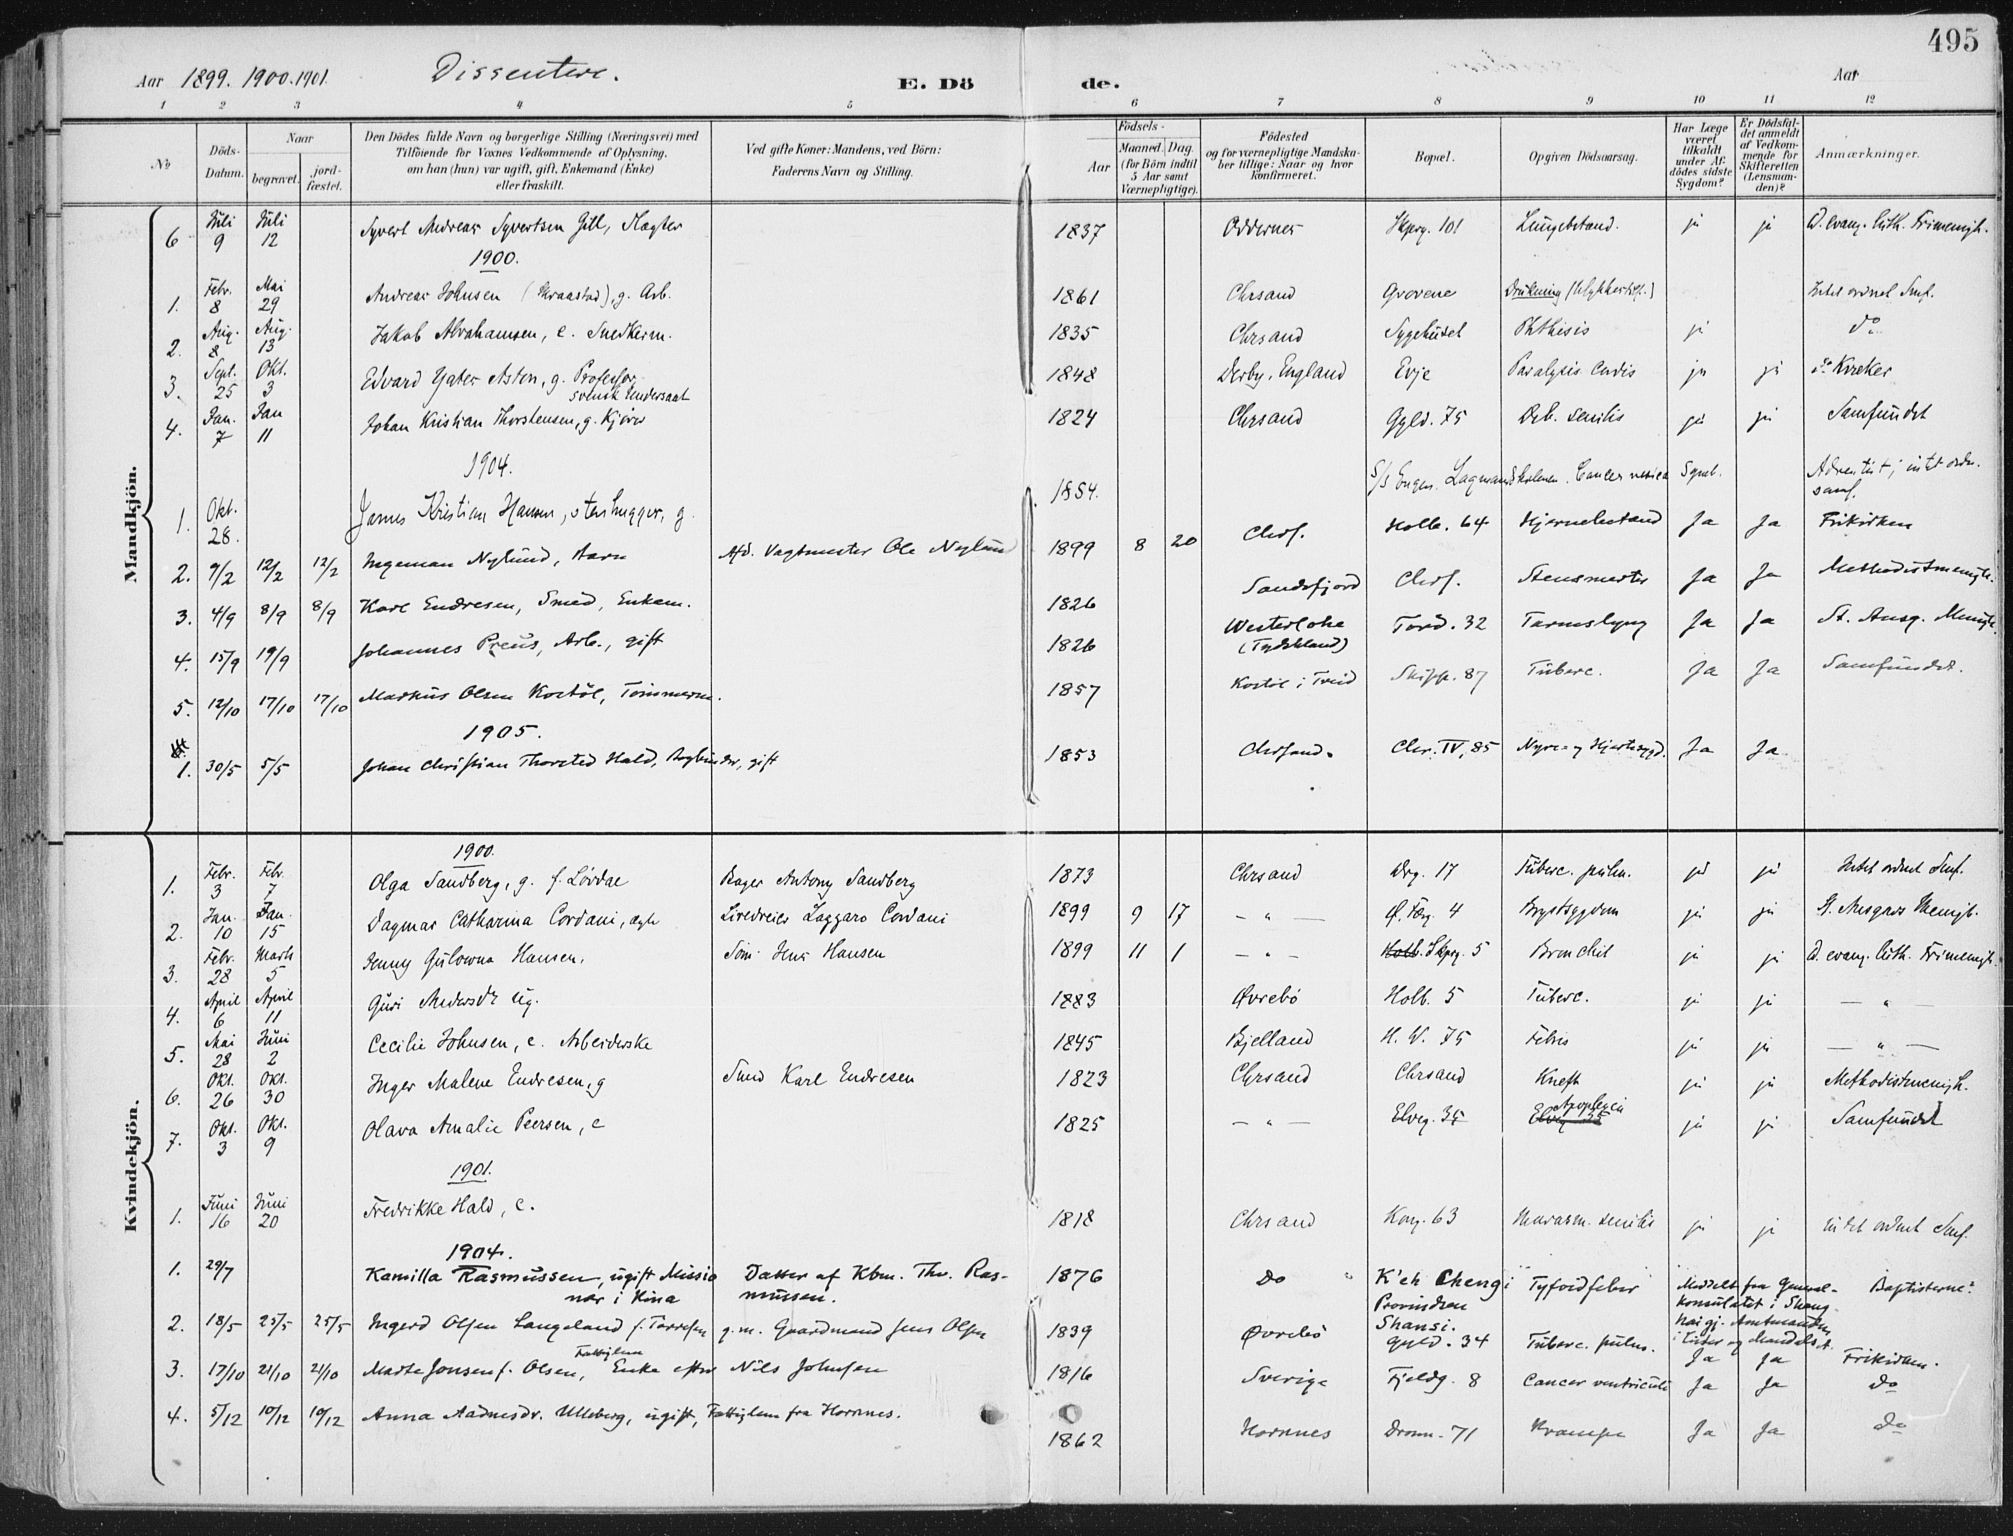 495
Aar 1899. 1900. 1901. Dissentere. E. Dö de. Aar
1 2 3 4 5 6 7 8 9 10 11 12
No
Döds-Datum.
Naar begravet. jord-fæstet.
Den Dödes fulde Navn og borgerlige Stilling (Næringsvei) med
Tilföiende for Voxnes Vedkommende af Oplysning,
om han (hun) var ugift, gift, Enkemand (Enke)
eller fraskilt.
Ved gifte Koner: Mandens, ved Börn:
Faderens Navn og Stilling.
Födsels-
Aar Maaned. Dag.
(for Börn indtil
5 Aar samt
Værnepligtige).
Födested
og for værnepligtige Mandska-
ber tillige: Naar og hvor
konfirmeret.
Bopæl.
Opgiven Dödsaarsag.
Har Læge
været
tilkaldt
under Af-
dödes sidste
Sygdom?
Er Dödsfal-
det anmeldt
af Vedkom-
mende for
Skifteretten
(Lensman-
den)?
Anmærkninger.
Mandkjön.
6 Juli 9 Juli 12 Syvert Andreas Syvertsen Gill, Slagter 1837 Oddernes Skprg. 101 Lungebetænd. ja ja D. evang. luth. Frimenigh.
1900.
1. Febr. 8 Mai 29 Andreas Johnsen g. Arb. 1861 Chrsand Grovene Drukning Intet ordnet Smf.
2. Aug. 8 Aug. 13 Jakob Abrahamsen, e. Snedkerm. 1835 Chrsand Sygehuset Phthisis ja do
3. Sept. 25 Okt. 3 Edvard Yates Aston, g. Professor 1848 Derby, England Evje Paralysis Cordis ja ja do Kvæker
svensk Undersaat
4. Jan. 7 Jan 11 Johan Kristian Thorstensen, g. Kjører 1824 Chrsand Gyld. 75 Deb. senilis ja ja Samfundet
1904.
1. Okt. 28. James Kristian Hansen, stenhugger, g. 1854. Cancer Adventist; intet ordn. samf.
2. 9/2 12/2 12/2 Ingeman Nylund, Barn Afd. Vagtmester Ole Nylund 1899 8 20 Chrs. Holb. 64 Hjernebetænd Ja Ja Frikirken
3. 4/9 8/9 8/9 Karl Endresen, Smed, Enkem. 1826 Sandefjord Chrs. Ja Ja Methodistmenigh.
4. 15/9 19/9 Johannes Preus, Arb., gift 1826 Westerlohe Tord. 32 Tarmslyng Ja Ja St. Ansg. Menigh.
(Tydskland)
5. 12/10 17/10 17/10 Markus Olsen Kostöl, Tömmerm. 1857 Kostöl i Tveid Skipp. 87 Tuberc. Ja Ja Samfundet.
1905.
1. 30/5 5/5 Johan Christian Thorsted Hald, Bogbinder, gift 1853 Chrsand. Chr. IV, 85 Nyre- og Hjertesygd. Ja Ja
Kvindekjön.
1900.
1. Febr. 3 Febr. 7 Olga Sandberg, g. f. Løvdal Bager Antony Sandberg 1873 Chrsand Drg. 17 Tuberc. pulm. ja ja Intet ordnet Smf.
2. Jan. 10 Jan. 15 Dagmar Catharina Cordani, ægte Liredreier Laggaro Cordani 1899 9 17 — " — Ø. Fæg. 4 Brystsygdom ja ja St. Ansgars Menigh.
3. Febr. 28 Marts 5 Jenny Gulowna Hansen, Söm. Jens Hansen 1899 11 1 — " — Holb. Skprg. 5 Bronchit ja ja D. evang. luth. Frimenigh.
4. April 6 April 11 Guri Andersdr. ug. 1883 Øvrebö Holb. 5 Tuberc. ja ja — " —
5. Mai 28 Juni 2 Cecilie Johnsen, e. Arbeiderske 1845 Bjelland H. W. 75 Febris ja ja — " —
6. Okt. 26 Okt. 30 Inger Malene Endresen, g Smed Karl Endresen 1823 Chrsand Chrsand Kræft ja ja Methodistmenigh.
7. Okt. 3 Okt. 9 Olava Amalie Peersen, e 1825 — " — Elveg. 35 Elveg 35 Apoplexia ja ja Samfundet
1901.
1. Juni 16 Juni 20 Fredrikke Hald, e. 1818 Chrsand Kong. 63 Marasm. senilis ja ja Intet ordnet Smf.
1904.
1. 29/7 Kamilla Rasmussen, ugift Missio Datter af Kbm. Thv. Ras- 1876 Do K'eh Chengi Tyfoidfeber Meddelt fra General- Baptisterne?
nær i Kina mussen. Provindsen konsulatet i Shang-
Shansi. hai gj. Amtmanden
i Lister og Mandals A.
2. 18/5 25/5 25/5 Ingerd Olsen Langeland f. Torresen g. m. Gaardmand Jens Olsen 1839 Øvrebö Gyld. 34 Tuberc. pulm. Ja Ja Frikirken.
3. 17/10 21/10 21/10 Marte Jonsen f. Olsen, Fattiglem Enke efter Nils Johnsen 1816 Sverige Fjeldg. 8 Cancer ventriculi Ja Ja do
4. 5/12 10/12 10/12 Anna Aadnesdr. Uleberg, ugift, Fattiglem fra Hornnes. 1862 Hornnes Dronn. 71 Krampe Ja Ja do